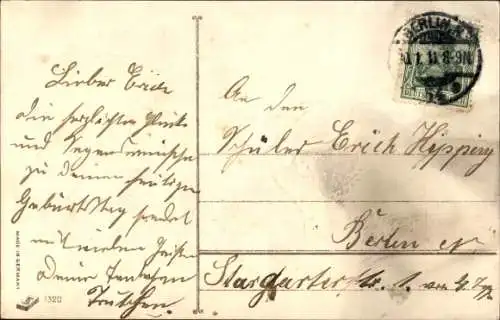 Lieber Erich
die herzlichsten Glück
und Segenswünsche
zu deinem heutigen
Geburtstag sendet
mit vielen Grüßen
deine Tante
Trutchen.
An den
Schüler Erich Hipping
Berlin N
Stargarterstr. 1.
BERLIN
11.1.11.8-9N
1320